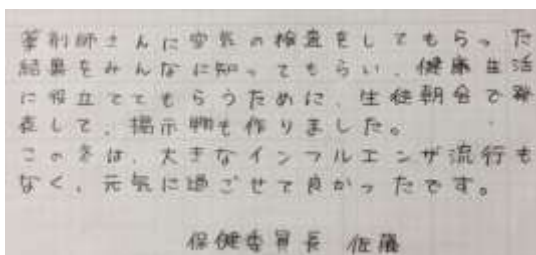 薬剤師さんに空気の検査をしてもらった
結果をみんなに知ってもらい、健康生活
に役立ててもらうために、生徒朝会で発
表して、掲示物も作りました。
この冬は、大きなインフルエンザ流行も
なく、元気に過ごせて良かったです。
保健委員長 佐藤